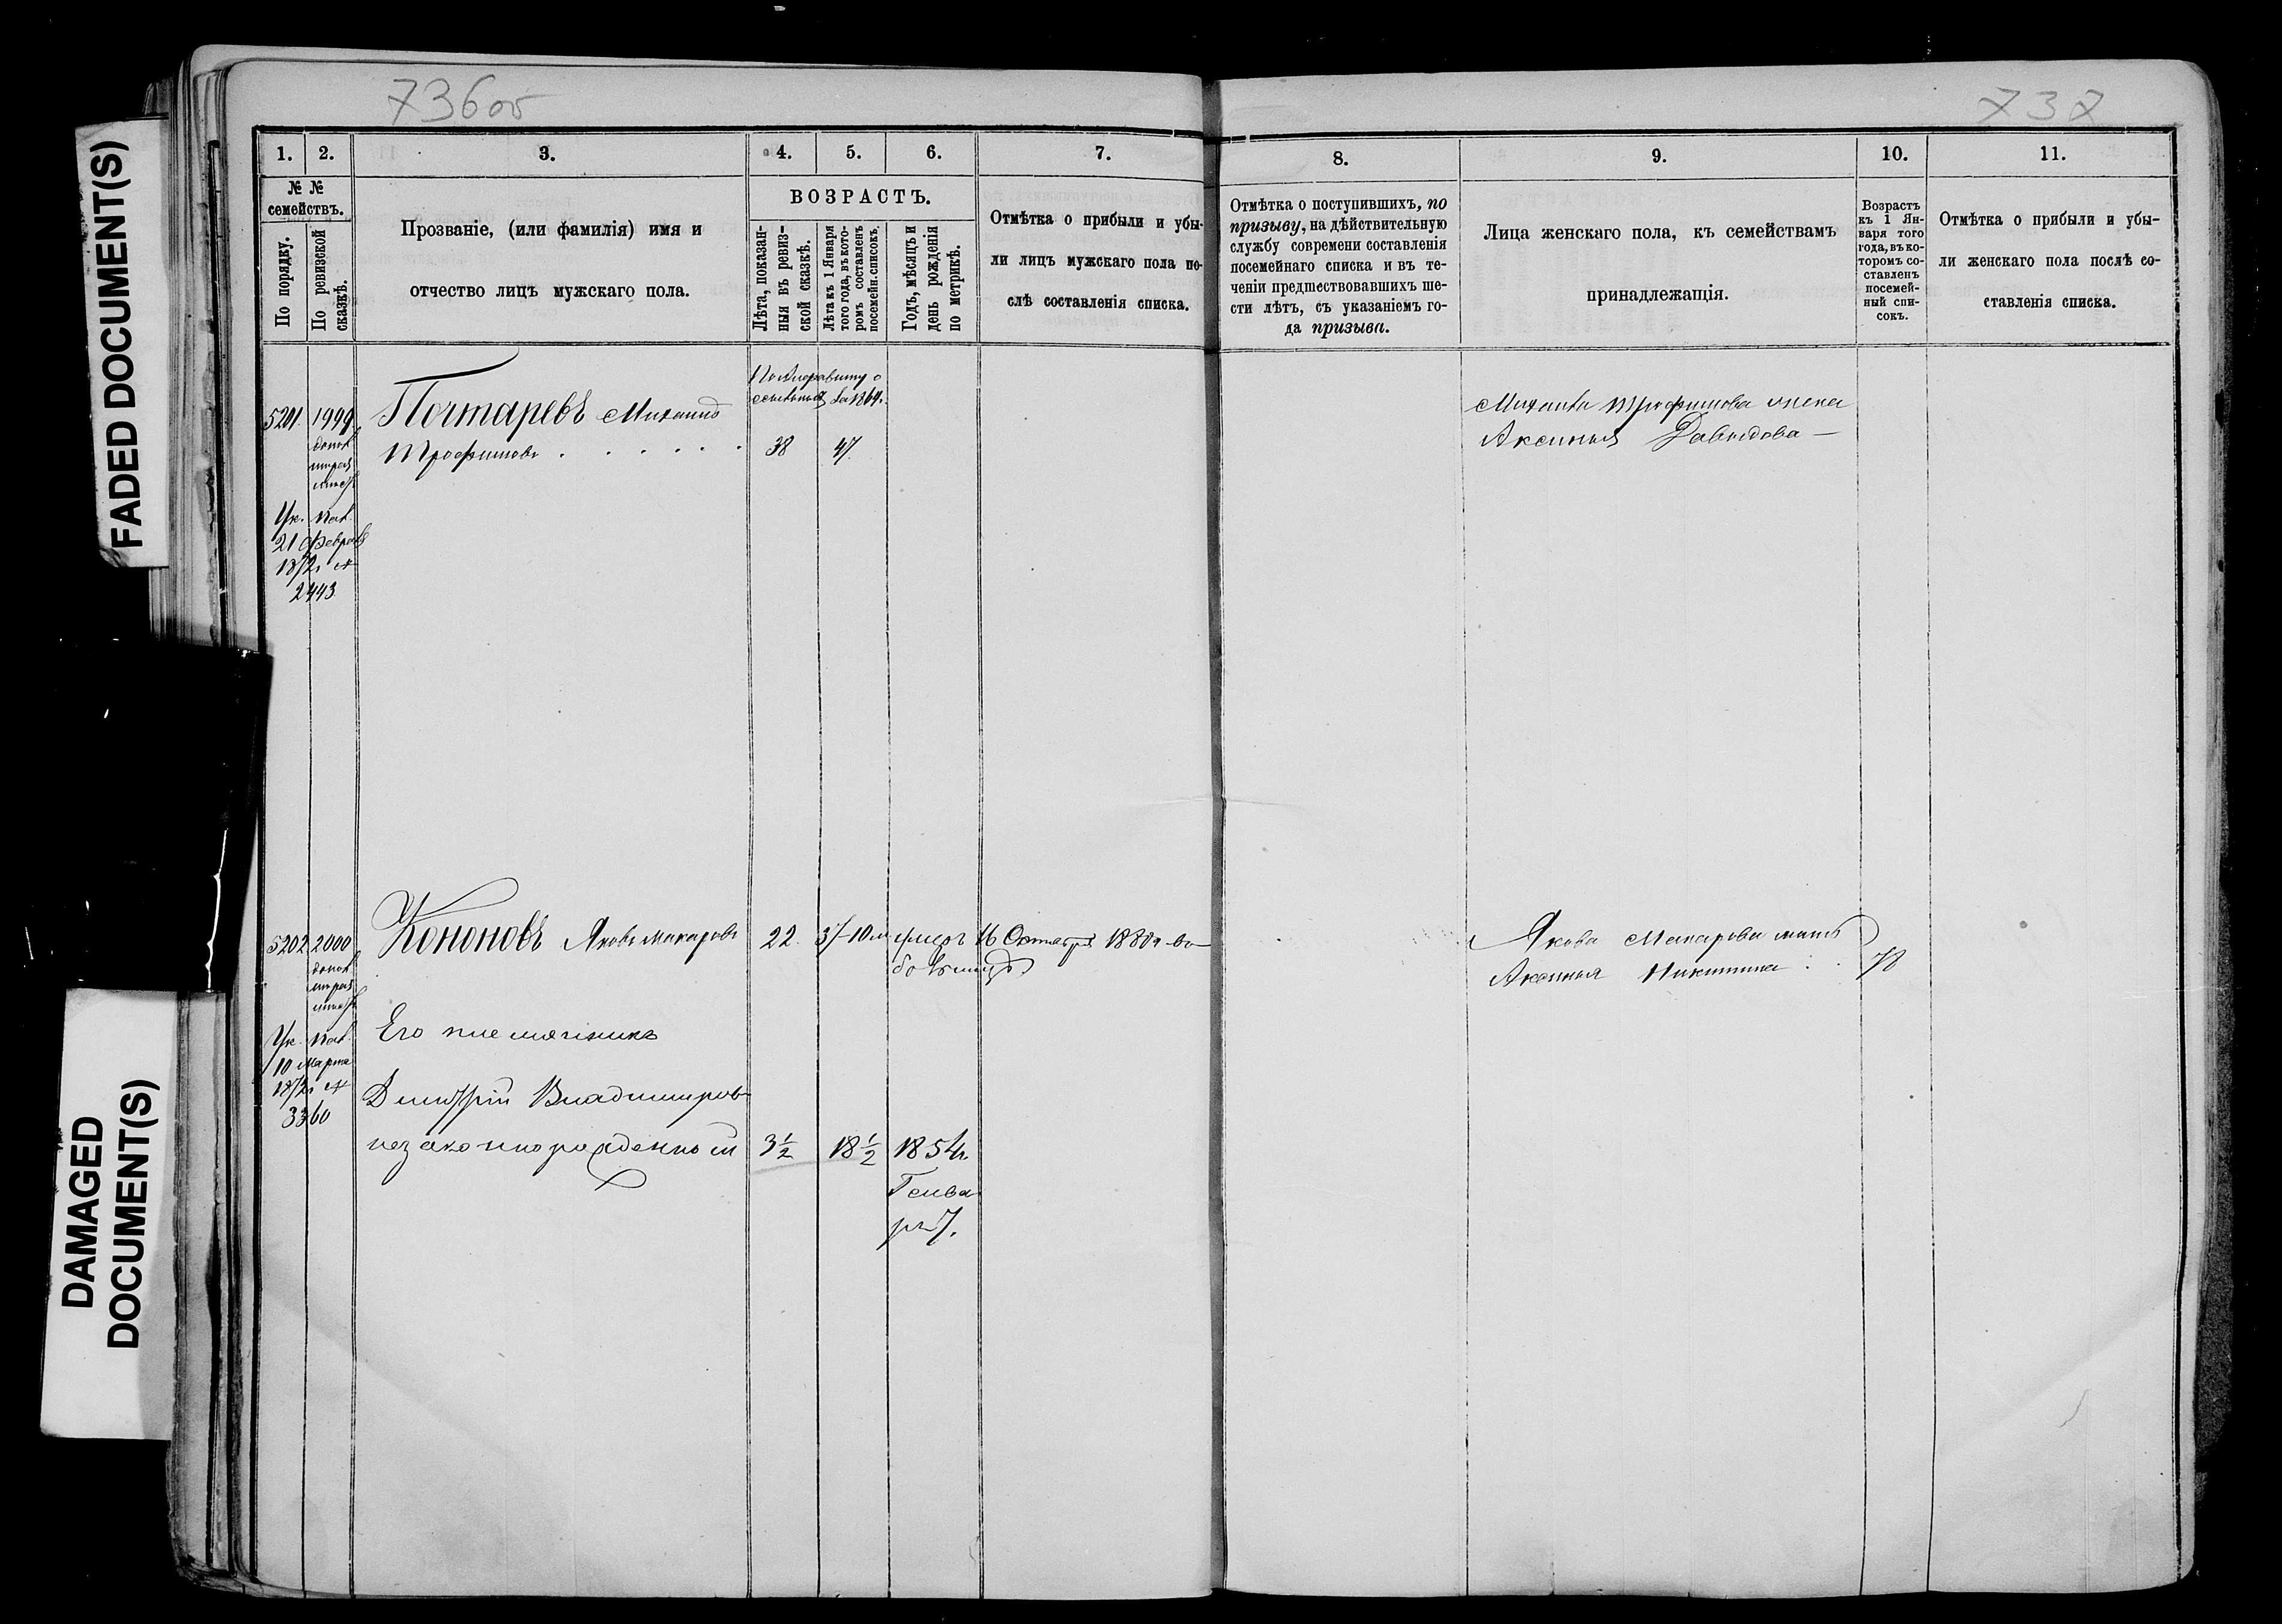 FADED DOCUMENT(S)
DAMAGED
DOCUMENT(S)
736об
737
1.
2.
3.
4.
5.
6.
7.
8.
9.
10.
11.
№ №
семействъ.
По порядку.
По ревизской
сказкѣ.
Прозваніе, (или фамилія) имя и
отчество лицъ мужскаго пола.
ВОЗРАСТЪ.
Лѣта, показан-
ныя въ ревиз-
ской сказкѣ.
Лѣта къ 1 Января
того года, въ кото-
ромъ составленъ
посемейн. списокъ.
Годъ, мѣсяцъ и
день рожденія
по метрикѣ.
Отмѣтка о прибыли и убы-
ли лицъ мужскаго пола по-
слѣ составленія списка.
Отмѣтка о поступившихъ, по
призыву, на дѣйствительную
службу современи составленія
посемейнаго списка и въ те-
ченіи предшествовавшихъ ше-
сти лѣтъ, съ указаніемъ го-
да призыва.
Лица женскаго пола, къ семействамъ
принадлежащія.
Возрастъ
къ 1 Ян-
варя того
года, въ ко-
торомъ со-
ставленъ
посемей-
ный спи-
сокъ.
Отмѣтка о прибыли и убы-
ли женскаго пола послѣ со-
ставленія списка.
5201
1999
Почтаревъ Михаилъ
Трофимовъ
38
47
за 1864г.
Михаила Трофимова жена
Аксинья Давыдова
Ук. Пал.
21 Февраля
1872г №
2443
5202
2000
Кононовъ Яковъ Макаровъ
22
37-10м
умеръ 16 Октября 1880г. въ
больницѣ
Якова Макарова мать
Аксинья Никитина
70
Ук. Пал.
10 Марта
1872г №
3360
Его племянникъ
Дмитрій Владимировъ
незаконнорожденный
3½
18½
1854г.
Генва
ря 7.